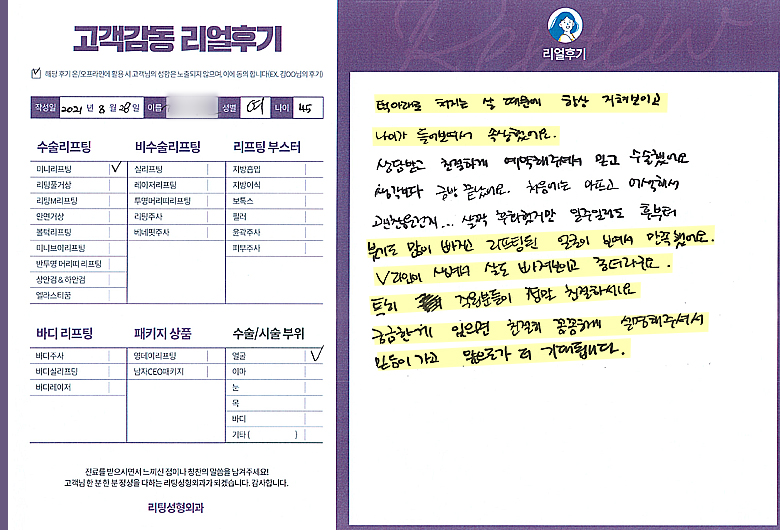 고객감동 리얼후기
해당 후기 온/오프라인에 활용 시 고객님의 성함은 노출되지 않으며, 이에 동의 합니다(EX. 김OO님의 후기)
작성일 2021 년 8 월 28 일 이름 성별 여 나이 45
수술리프팅
미니리프팅 ✓
리팅풀거상
리팅M리프팅
안면거상
볼턱리프팅
미니브이리프팅
반투명 머리띠 리프팅
상안검 & 하안검
엘라스티꿈
비수술리프팅
실리프팅
레이저리프팅
투명머리띠리프팅
리팅주사
베네핏주사
리프팅 부스터
지방흡입
지방이식
보톡스
필러
윤곽주사
피부주사
바디 리프팅
바디주사
바디실리프팅
바디레이저
패키지 상품
영네이리프팅
남자CEO패키지
수술/시술 부위
얼굴 ✓
이마
눈
목
바디
기타 ( )
진료를 받으시면서 느끼신 점이나 칭찬의 말씀을 남겨주세요!
고객님 한 분 한 분 정성을 다하는 리팅성형외과가 되겠습니다. 감사합니다.
리팅성형외과
리얼후기
턱아래로 쳐지는 살 때문에 항상 지쳐보이고
나이가 들어보여서 속상했어요.
상담받고 친절하게 예약해주셔서 믿고 수술했어요
생각보다 금방 끝났어요. 처음에는 아프고 어색해서
괜찮을런지... 살짝 후회했지만 일주일정도 후부터
붓기도 많이 빠지고 리프팅된 얼굴이 보여서 만족했어요.
V라인이 생겨서 살도 빠져보이고 좋더라구요.
특히 직원분들이 정말 친절하세요
궁금한게 있으면 친절히 꼼꼼하게 설명해주셔서
믿음이 가고 앞으로가 더 기대됩니다.